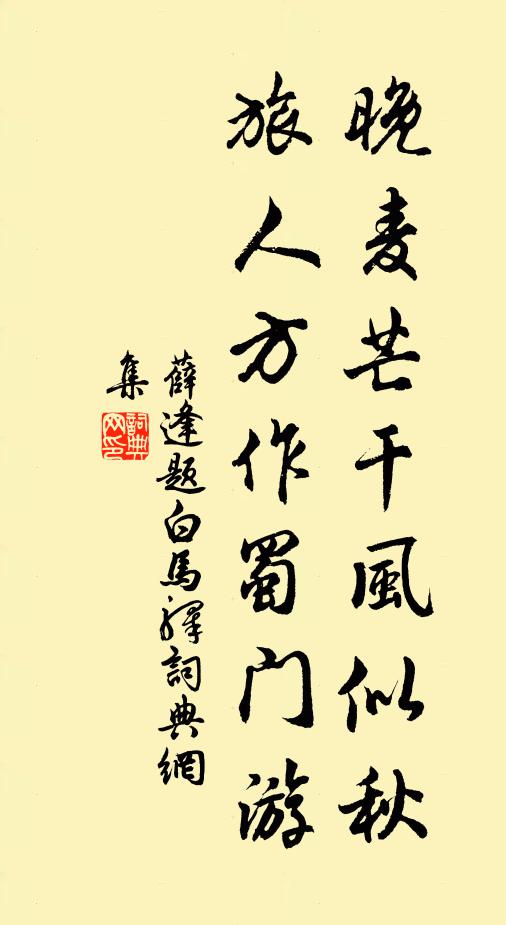 晚麦芒干風似秋
旅人方作蜀门游
薛逢题白馬驛詞典網
集
詞典
网印